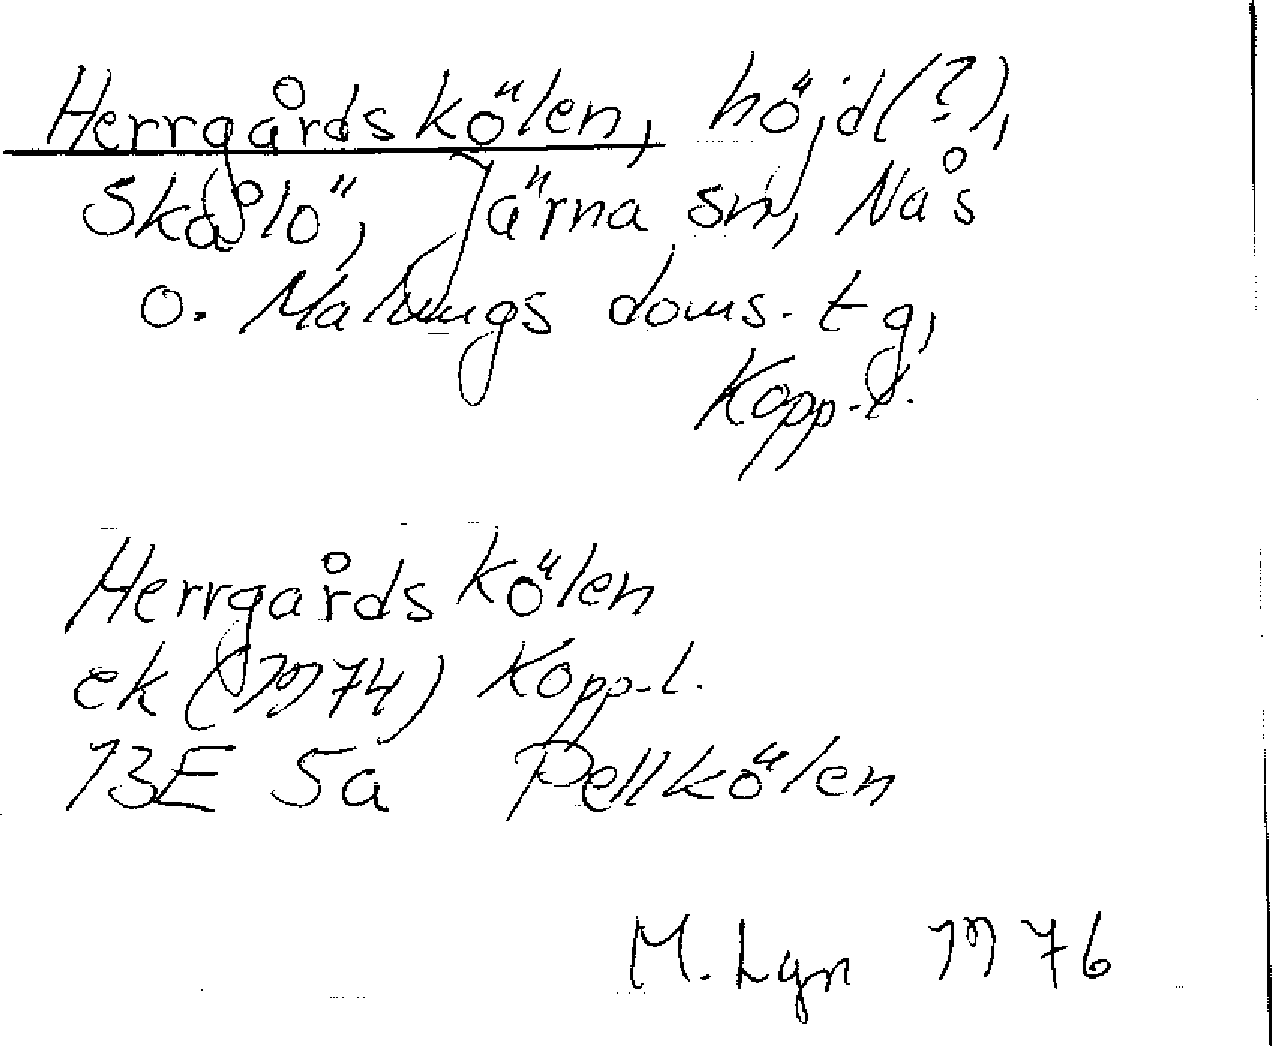 Herrgårdskölen, höjd(?),
Skålö, Järna sn, Nås
o. Malungs doms. tg,
Kopp.l.
Herrgårdskölen
ek (1974) Kopp.l.
13E 5a Pellkölen
M. Lgn 1976